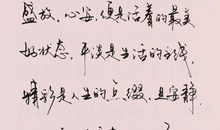 盛放，心安，便是活着的最美
好状态，平淡是生活的主线
精彩是人生的点缀，且安静